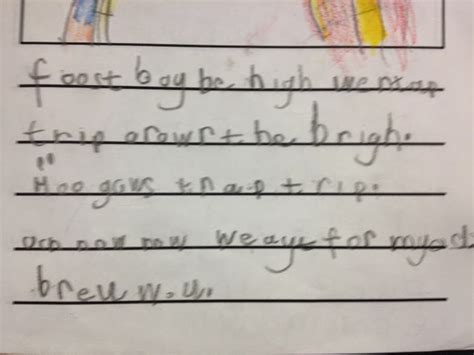 foost boy be high wentap
trip arowst he brigh.
"Hoo gows tnap trip.
now now we aye for my
breu w.u.